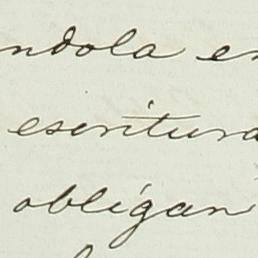 ndola en
escritura
obligan